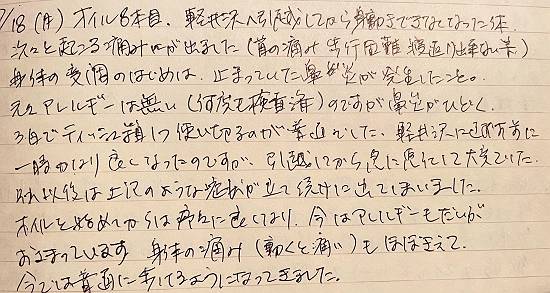 7/18(月)オイル8本目、軽井沢へ引越してから身動きできなくなった体
次々と起こる痛みが出ました(首の痛み 歩行困難 寝返り出来ない等)
身体の変調のはじめは、止まっていた鼻炎が発生したこと。
元々アレルギーは無い(何度も検査済)のですが鼻炎がひどく、
3日でティッシュ1箱使い切るのが普通でした。軽井沢に
一時かなり良くなったのですが、引越してから急に悪化して大変でした。
それ以後は上記のような症状が立て続けに出てしまいました。
オイルを始めてからは序々に良くなり、今はアレルギーもだいぶ
おさまっています 身体の痛み(動くと痛い)もほぼ消えて、
今では普通に歩けるようになってきました。